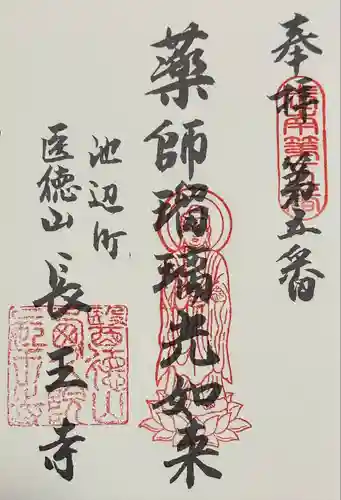 奉拝 第五番
薬師瑠璃光如来
池辺町
医徳山 長王寺